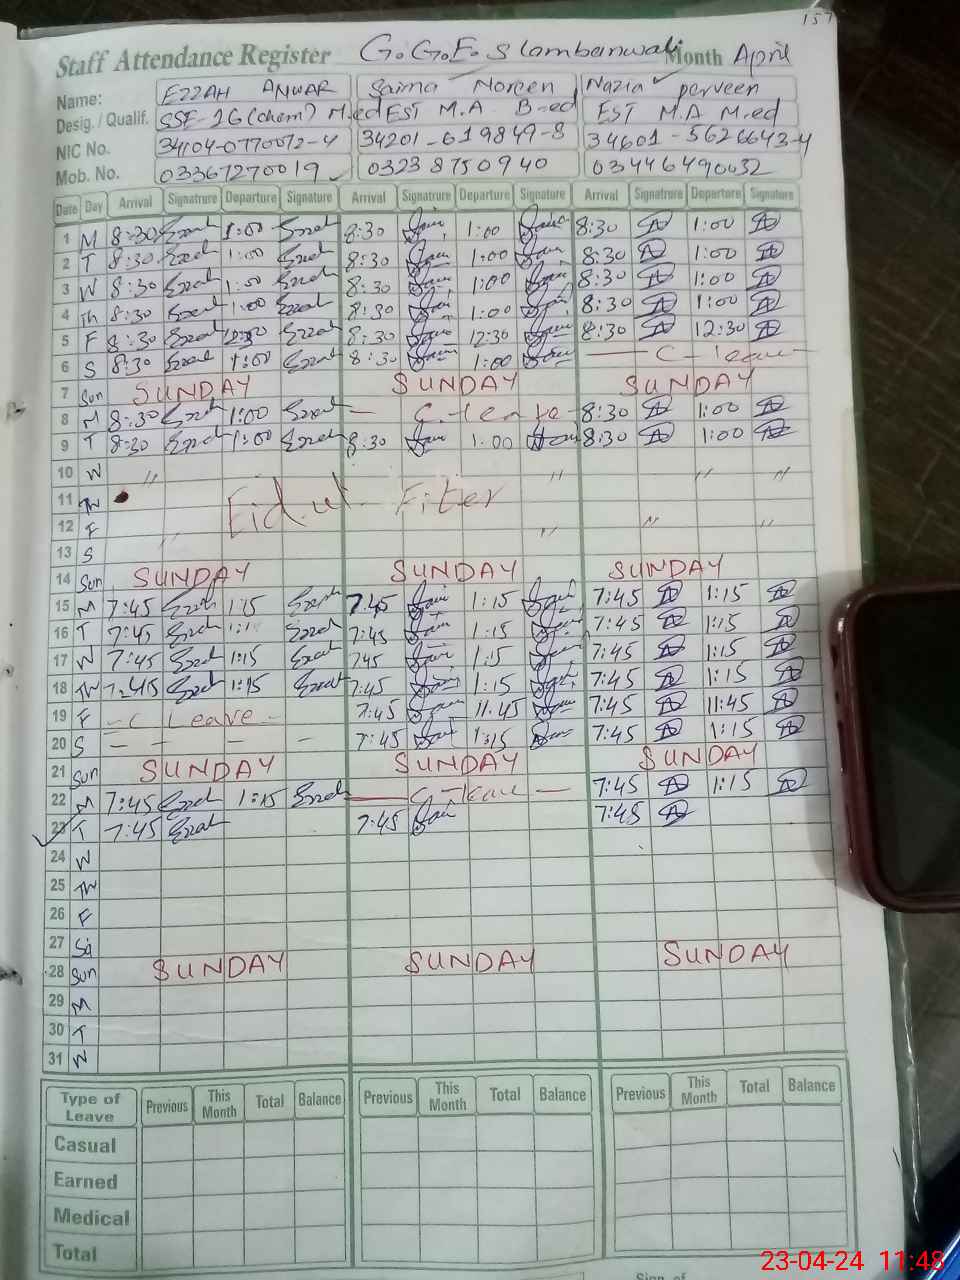 157
Staff Attendance Register G.G.E.S lambanwali Month April
Name: EZZAH ANWAR Saima Noreen Nazia perveen
Desig. / Qualif. SSE-16(chem) M.ed EST M.A B-ed EST M.A M.ed
NIC No. 34104-0770072-4 34201-619849-8 34601-5626643-4
Mob. No. 03367270019 03238750940 03446490032
Date Day Arrival Signatrure Departure Signature Arrival Signatrure Departure Signature Arrival Signatrure Deperture Signature
1 M 8:30 Ezzah 1:00 Ezzah 8:30 1:00 8:30 1:00
2 T 8:30 Ezzah 1:00 Ezzah 8:30 1:00 8:30 1:00
3 W 8:30 Ezzah 1:00 Ezzah 8:30 1:00 8:30 1:00
4 Th 8:30 Ezzah 1:00 Ezzah 8:30 1:00 8:30 1:00
5 F 8:30 Ezzah Ezzah 8:30 12:30 8:30 12:30
6 S 8:30 Ezzah 1:00 Ezzah 8:30 1:00 — C-leave —
7 Sun SUNDAY SUNDAY SUNDAY
8 M 8:30 Ezzah 1:00 Ezzah — 8:30 1:00
9 T 8:30 Ezzah 1:00 Ezzah 8:30 1:00 8:30 1:00
10 W " " " "
11 Th Eid.ul-Fiter
12 F " " " "
13 S
14 Sun SUNDAY SUNDAY SUNDAY
15 M 7:45 Ezzah 1:15 Ezzah 7:45 1:15 7:45 1:15
16 T 7:45 Ezzah Ezzah 7:45 1:15 7:45 1:15
17 W 7:45 Ezzah 1:15 Ezzah 745 1:15 7:45 1:15
18 Th 7:45 Ezzah 1:15 Ezzah 7:45 1:15 7:45 1:15
19 F - C Leave - 7:45 11:45 7:45 11:45
20 S — — — — 7:45 1:15 7:45 1:15
21 Sun SUNDAY SUNDAY SUNDAY
22 M 7:45 Ezzah 1:15 Ezzah — C-leave — 7:45 1:15
23 T 7:45 Ezzah 7:45 7:45
24 W
25 Th
26 F
27 Sa
28 Sun SUNDAY SUNDAY SUNDAY
29 M
30 T
31 W
Type of Leave Previous This Month Total Balance Previous This Month Total Balance Previous This Month Total Balance
Casual
Earned
Medical
Total
Sign. of
23-04-24 11:48